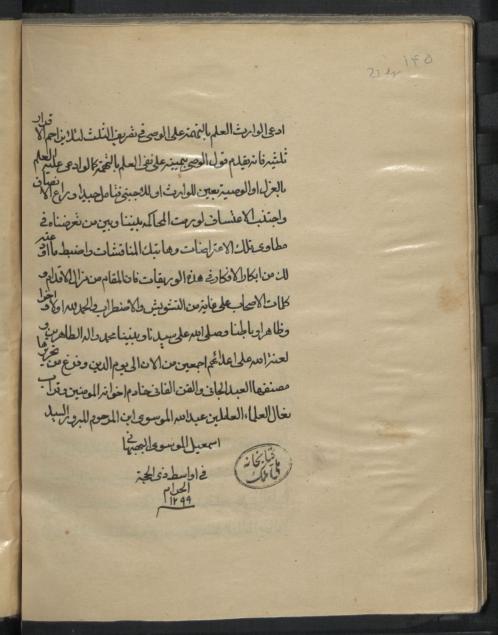 ١٤٥
ادعى الوارث العلم بالتهمة على الوصى فى تفريق الثلث لئلا يزاحم الاقرار
ثلثيه فانه يقدم قول الوصى بيمينه على نفى العلم بالتهمة كما لو ادعى عليه العلم
بالعزل او الوصية بعين للوارث او للاجنبى فتامل جيدا وراع الانصاف
واجتنب الاعتساف لو رمت المحاكمه بيننا وبين من تعرضناه فى
مطاوى تلك الاعتراضات وهاتيك المناقشات واضبط ما
لك من ابكار الافكار فى هذه الوريقات فان المقام من مزال الاقدام و
كلمات الاصحاب على غاية من التشويش والاضطراب والحمد لله اولا واخرا
وظاهرا وباطنا وصلى الله على سيدنا ونبينا محمد واله الطاهرين و
لعنة الله على اعدائهم اجمعين من الان الى يوم الدين وفرغ من تحريرها
مصنفها العبد الجانى والقن الفانى خادم اخوانه المومنين وتراب
نعال العلماء العاملين عبد الله الموسوى ابن المرحوم المبرور السيد
اسمعيل الموسوى البهبهانى
فى اواسط ذى الحجة
الحرام
١٢٩٩
كتابخانه
ملى ملك